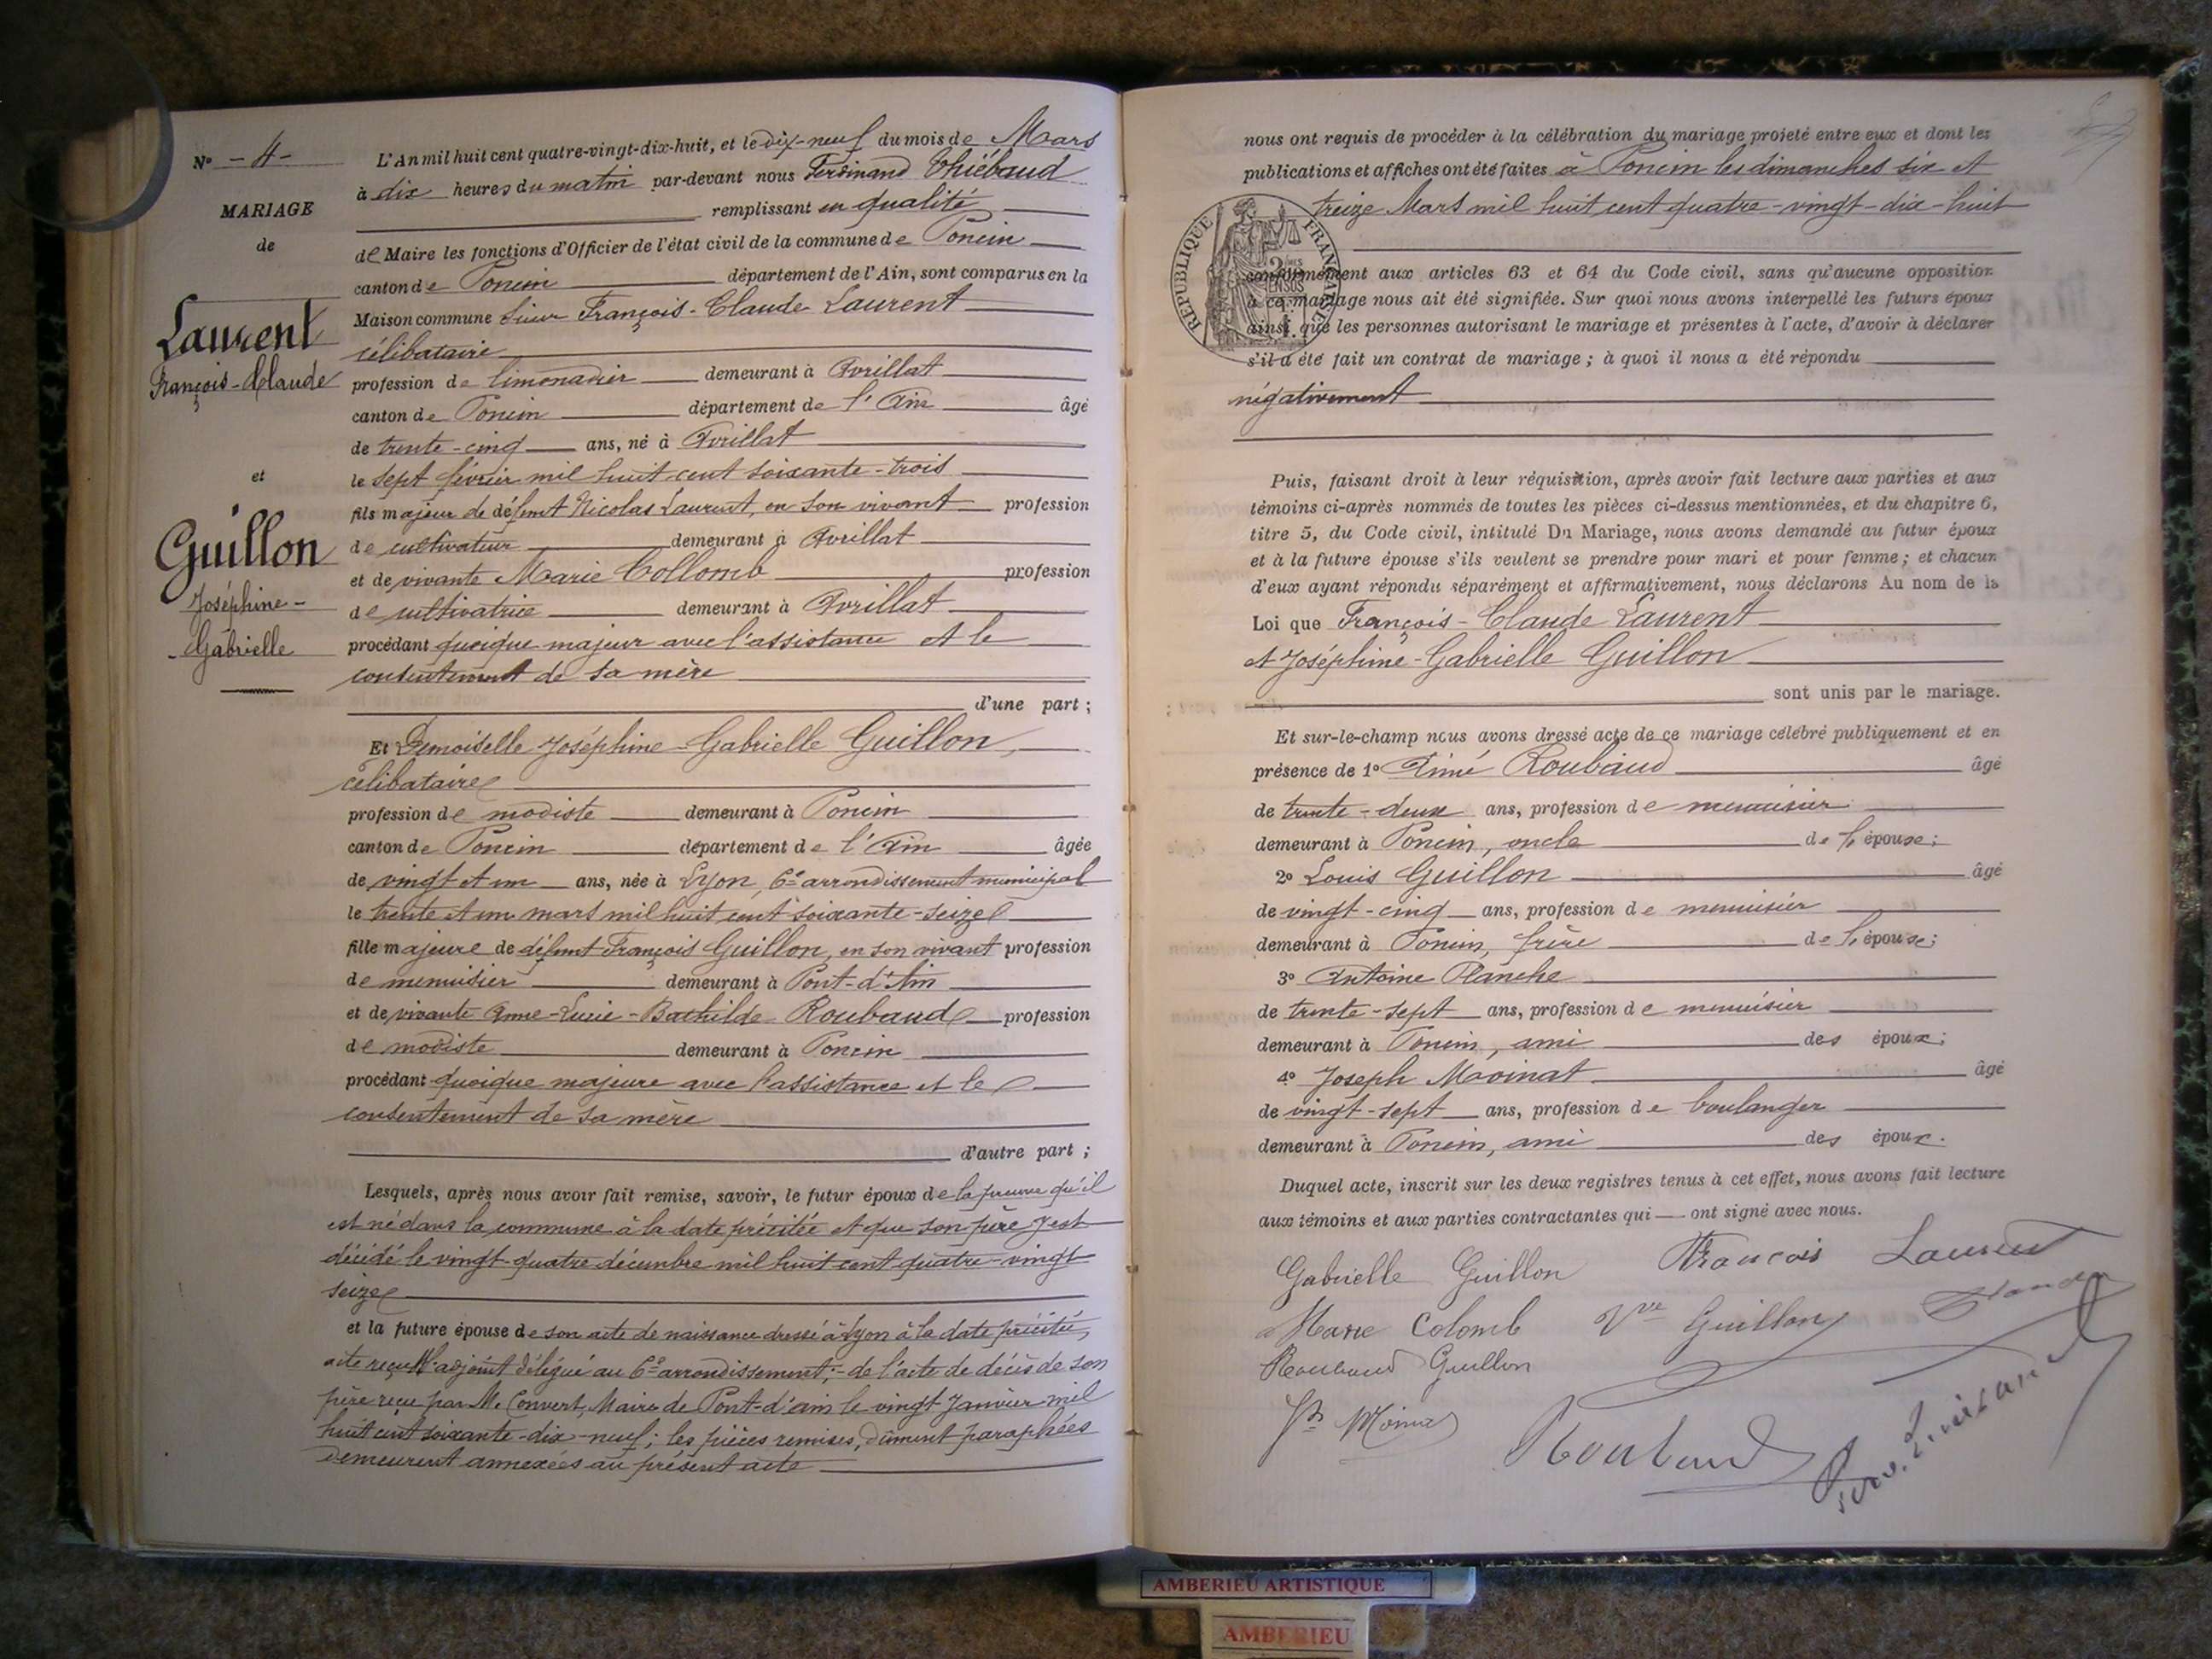 N° - 4 -
MARIAGE
de
Laurent
François-Claude
et
Guillon
Joséphine-
Gabrielle
L'An mil huit cent quatre-vingt-dix-huit, et le dix-neuf du mois de Mars
à dix heures du matin par-devant nous Ferdinand Thiébaud
remplissant en qualité
de Maire les fonctions d'Officier de l'état civil de la commune de Poncin
canton de Poncin département de l'Ain, sont comparus en la
Maison commune Sieur François-Claude Laurent
célibataire
profession de limonadier demeurant à Avrillat
canton de Poncin département de l'Ain âgé
de trente-cinq ans, né à Avrillat
le sept février mil huit cent soixante-trois
fils majeur de défunt Nicolas Laurent, en son vivant profession
de cultivateur demeurant à Avrillat
et de vivante Marie Collomb profession
de cultivatrice demeurant à Avrillat
procédant quoique majeur avec l'assistance et le
consentement de sa mère
d'une part ;
Et Demoiselle Joséphine-Gabrielle Guillon,
célibataire
profession de modiste demeurant à Poncin
canton de Poncin département de l'Ain âgée
de vingt et un ans, née à Lyon, 6e arrondissement municipal
le trente et un mars mil huit cent soixante-seize
fille majeure de défunt François Guillon, en son vivant profession
de menuisier demeurant à Pont-d'Ain
et de vivante Anne-Lucie-Bathilde Roubaud profession
de modiste demeurant à Poncin
procédant quoique majeure avec l'assistance et le
consentement de sa mère
d'autre part ;
Lesquels, après nous avoir fait remise, savoir, le futur époux de la preuve qu'il
est né dans la commune à la date précitée et que son père y est
décédé le vingt-quatre décembre mil huit cent quatre-vingt
seize
et la future épouse de son acte de naissance dressé à Lyon à la date précitée,
acte reçu M. l'adjoint délégué au 6e arrondissement ;- de l'acte de décès de son
père reçu par M. Convert, Maire de Pont-d'ain le vingt Janvier mil
huit cent soixante-dix-neuf ; les pièces remises, dûment paraphées
demeurent annexées au présent acte
nous ont requis de procéder à la célébration du mariage projeté entre eux et dont les
publications et affiches ont été faites à Poncin les dimanches six et
treize Mars mil huit cent quatre-vingt-dix-huit
RÉPUBLIQUE FRANÇAISE
conformément aux articles 63 et 64 du Code civil, sans qu'aucune opposition
à ce mariage nous ait été signifiée. Sur quoi nous avons interpellé les futurs époux
ainsi que les personnes autorisant le mariage et présentes à l'acte, d'avoir à déclarer
s'il a été fait un contrat de mariage ; à quoi il nous a été répondu
négativement
Puis, faisant droit à leur réquisition, après avoir fait lecture aux parties et aux
témoins ci-après nommés de toutes les pièces ci-dessus mentionnées, et du chapitre 6,
titre 5, du Code civil, intitulé Du Mariage, nous avons demandé au futur époux
et à la future épouse s'ils veulent se prendre pour mari et pour femme ; et chacun
d'eux ayant répondu séparément et affirmativement, nous déclarons Au nom de la
Loi que François-Claude Laurent
et Joséphine-Gabrielle Guillon
sont unis par le mariage.
Et sur-le-champ nous avons dressé acte de ce mariage célébré publiquement et en
présence de 1° Aimé Roubaud âgé
de trente-deux ans, profession de menuisier
demeurant à Poncin, oncle de l'épouse ;
2° Louis Guillon âgé
de vingt-cinq ans, profession de menuisier
demeurant à Poncin, frère de l'épouse ;
3° Antoine Planche
de trente-sept ans, profession de menuisier
demeurant à Poncin, ami des époux ;
4° Joseph Moinat âgé
de vingt-sept ans, profession de boulanger
demeurant à Poncin, ami des époux.
Duquel acte, inscrit sur les deux registres tenus à cet effet, nous avons fait lecture
aux témoins et aux parties contractantes qui ont signé avec nous.
Gabrielle Guillon François Laurent
Marie Colomb Vve Guillon
Roubaud Guillon
Moinat Roubaud
AMBERIEU ARTISTIQUE
AMBERIEU